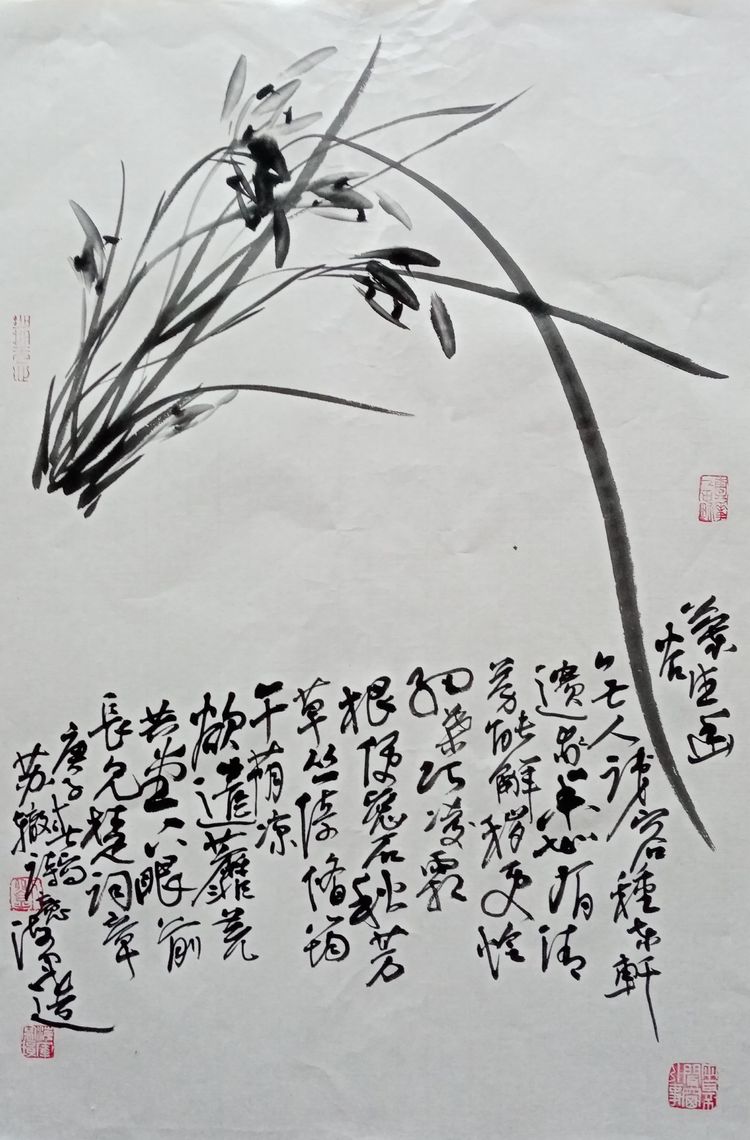 蘭生幽谷
無人識客種东軒
遺我香知有清
芬能解穢更怜
细葉巧凌霜
根便密石秋芳
草丛倚脩筠
午荫凉
欲遣蘼芜
共堂下眼前
長見楚詞章
庚子
苏辙詩